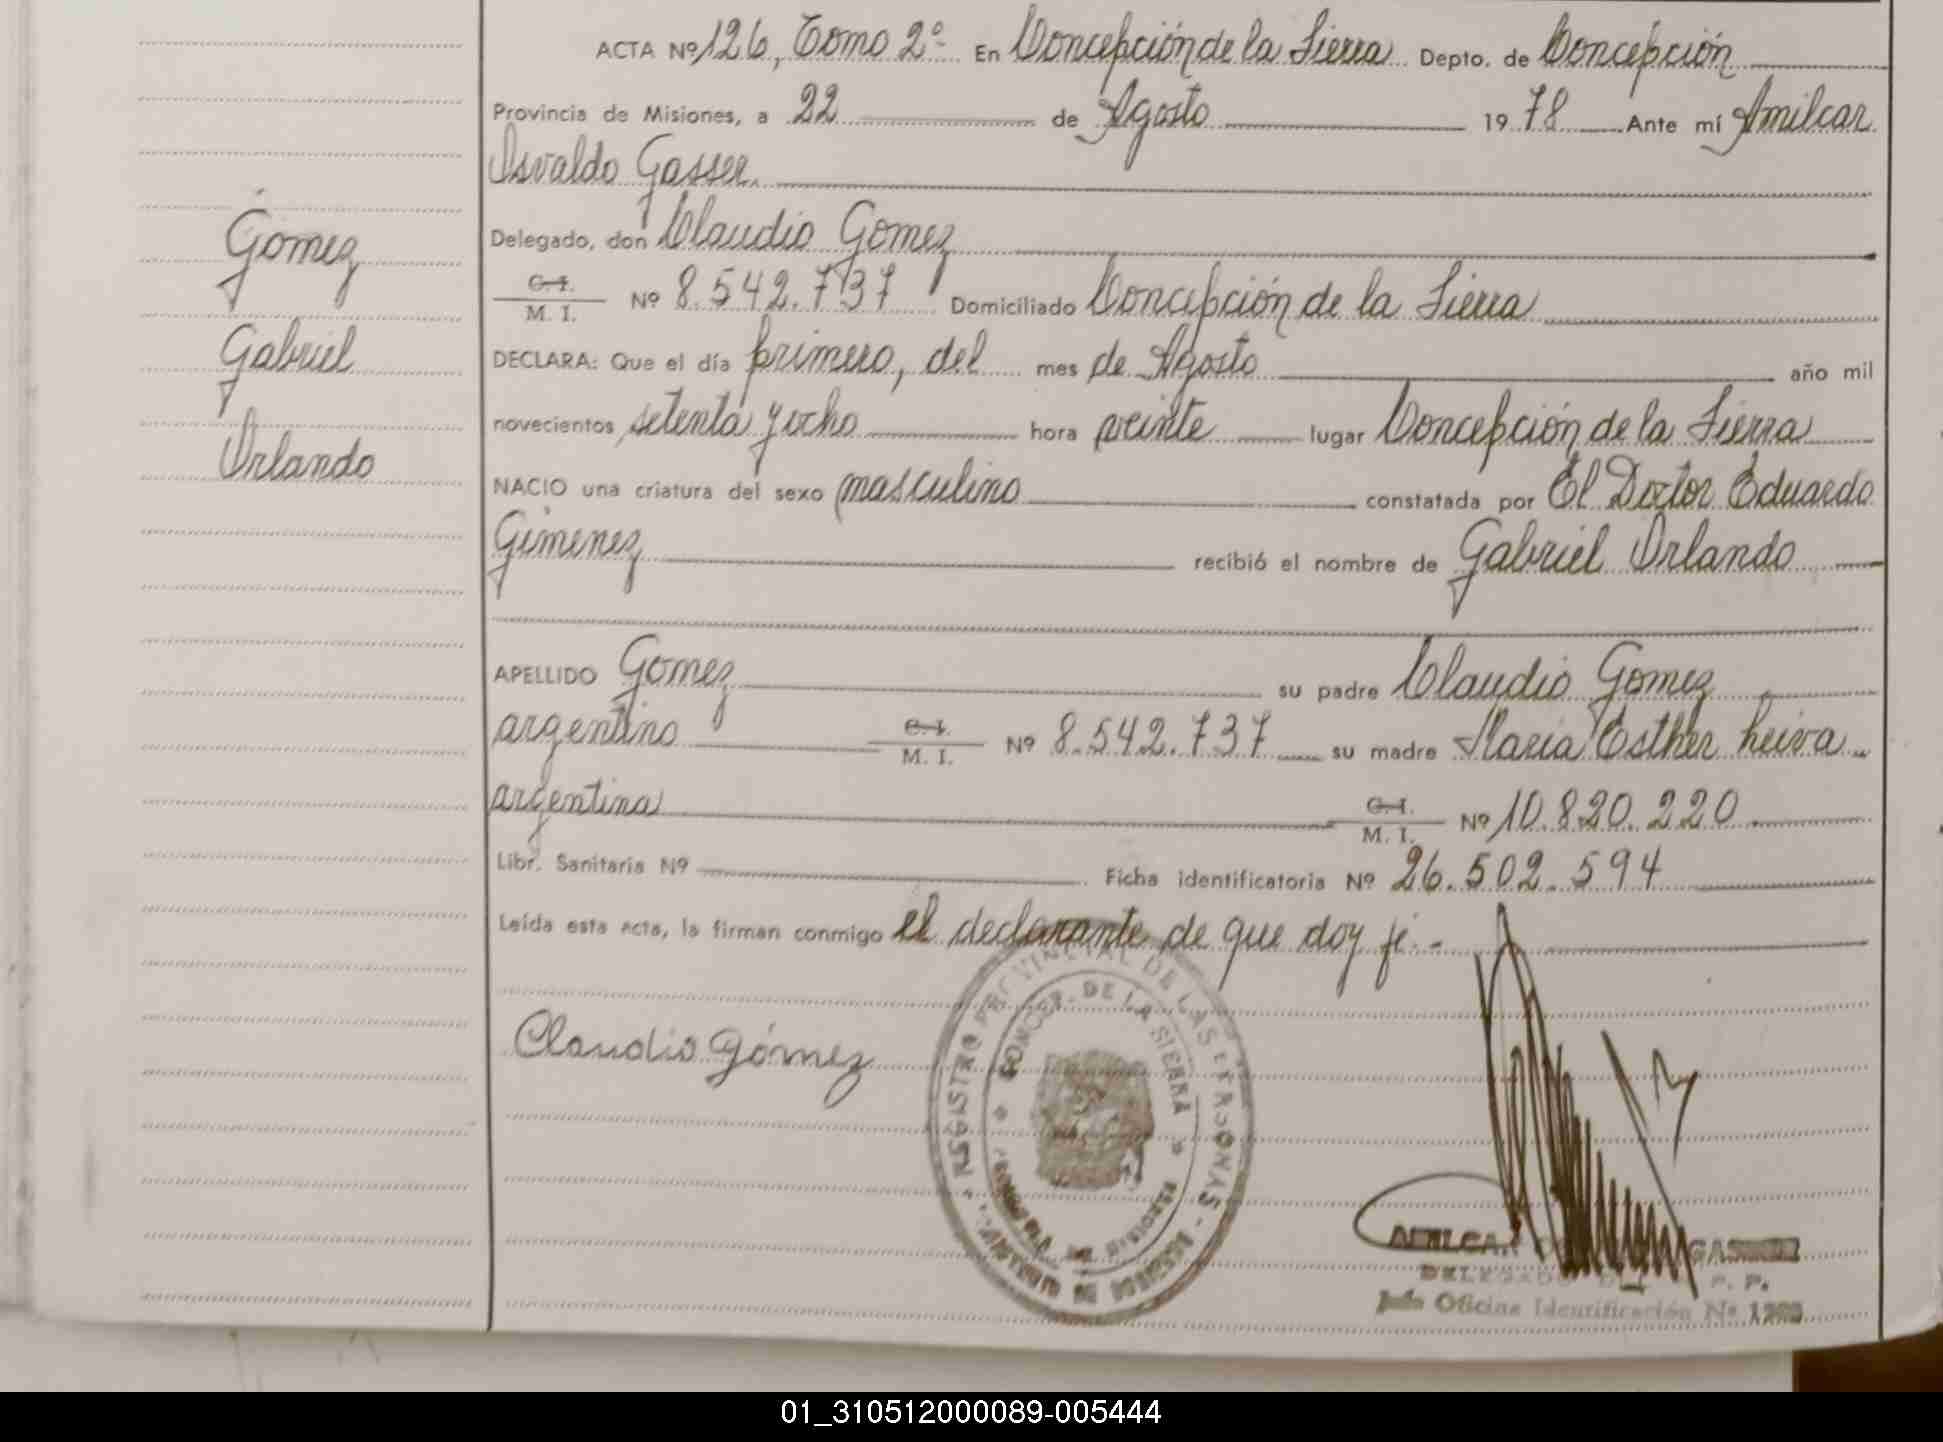 ACTA Nº 126, Tomo 2º- En Concepción de la Sierra Depto. de Concepción
Provincia de Misiones, a 22 de Agosto 19 78 Ante mí Amilcar
Osvaldo Gasser.
Delegado, don Claudio Gomez
C.I.
M. I. Nº 8.542.737 Domiciliado Concepción de la Sierra
DECLARA: Que el día primero, del mes de Agosto año mil
novecientos setenta y ocho hora veinte lugar Concepción de la Sierra
NACIO una criatura del sexo masculino constatada por El Doctor Eduardo
Gimenez recibió el nombre de Gabriel Orlando
APELLIDO Gomez su padre Claudio Gomez
argentino C.I. M. I. Nº 8.542.737 su madre Maria Esther Leiva
argentina C.I. M. I. Nº 10.820.220
Libr. Sanitaria Nº Ficha identificatoria Nº 26.502.594
Leída esta acta, la firman conmigo el declarante de que doy fé.-
Gomez
Gabriel
Orlando
Claudio Gómez
REGISTRO PROVINCIAL DE LAS PERSONAS
CONCEP. DE LA SIERRA
AMILCAR GASSER
DELEGADO
Jefe Oficina Identificación Nº
01_310512000089-005444